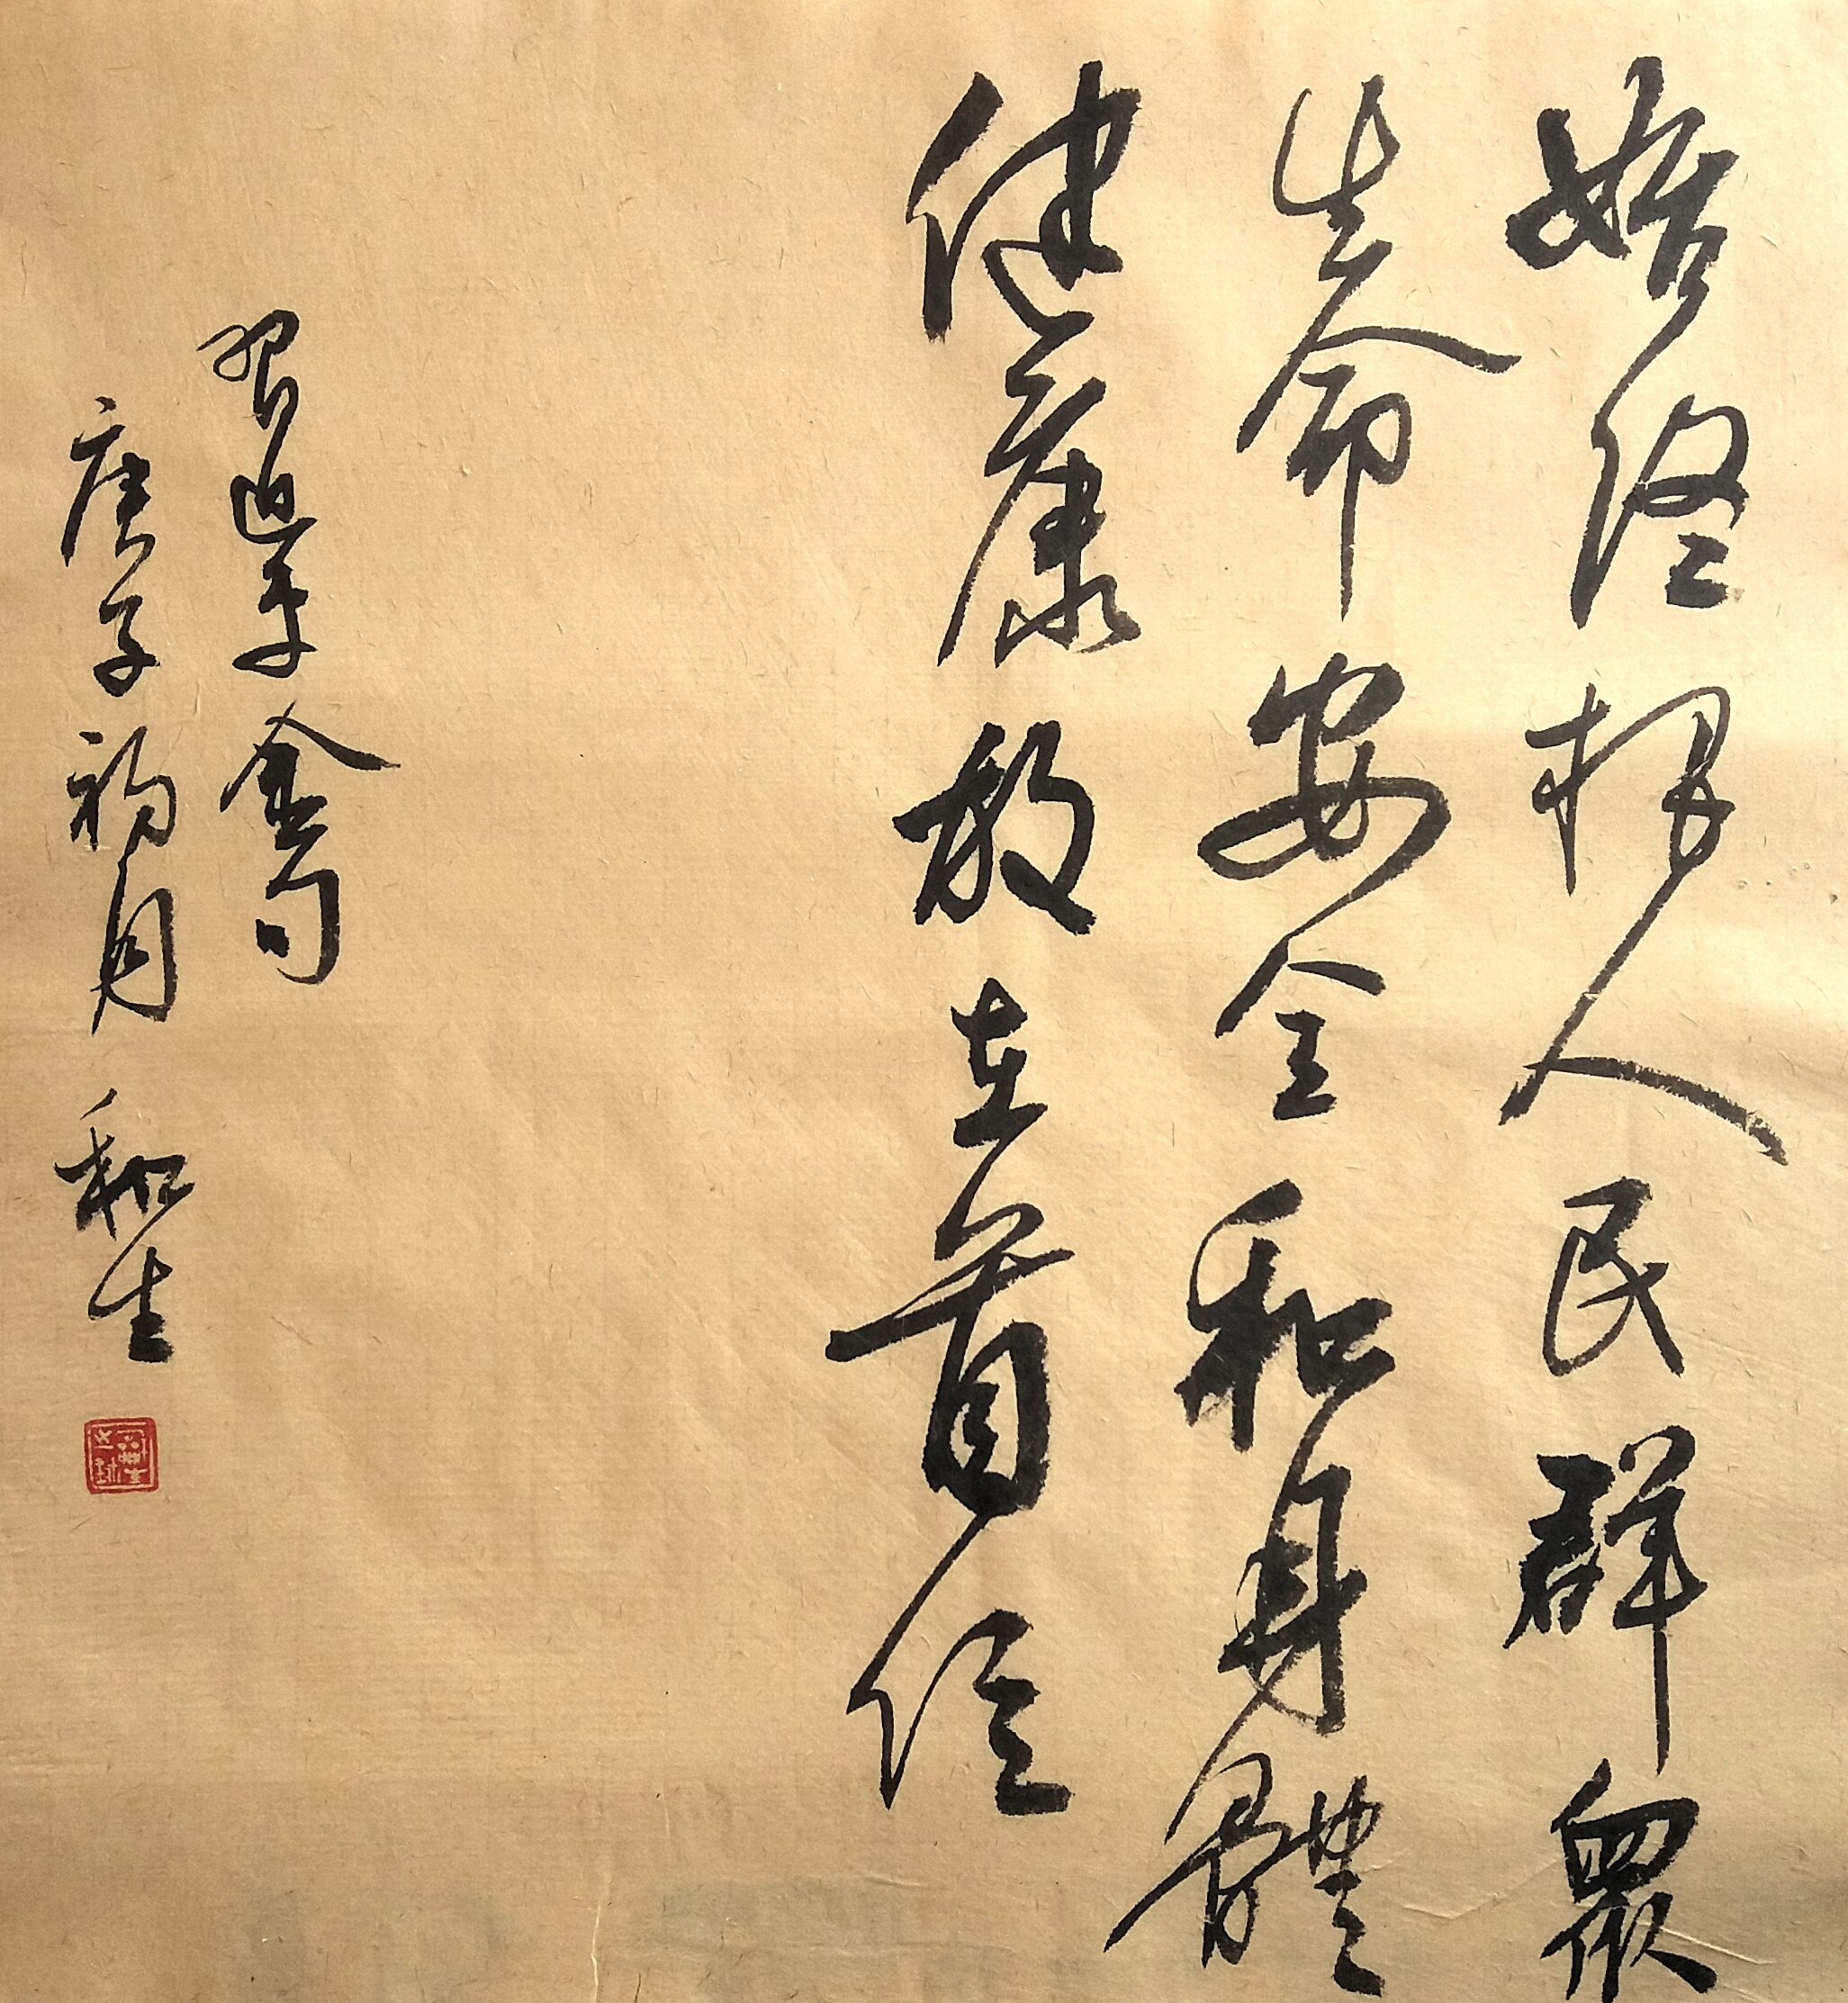 始终把人民群眾
生命安全和身體
健康放在首位
習近平金句
庚子初月 和生